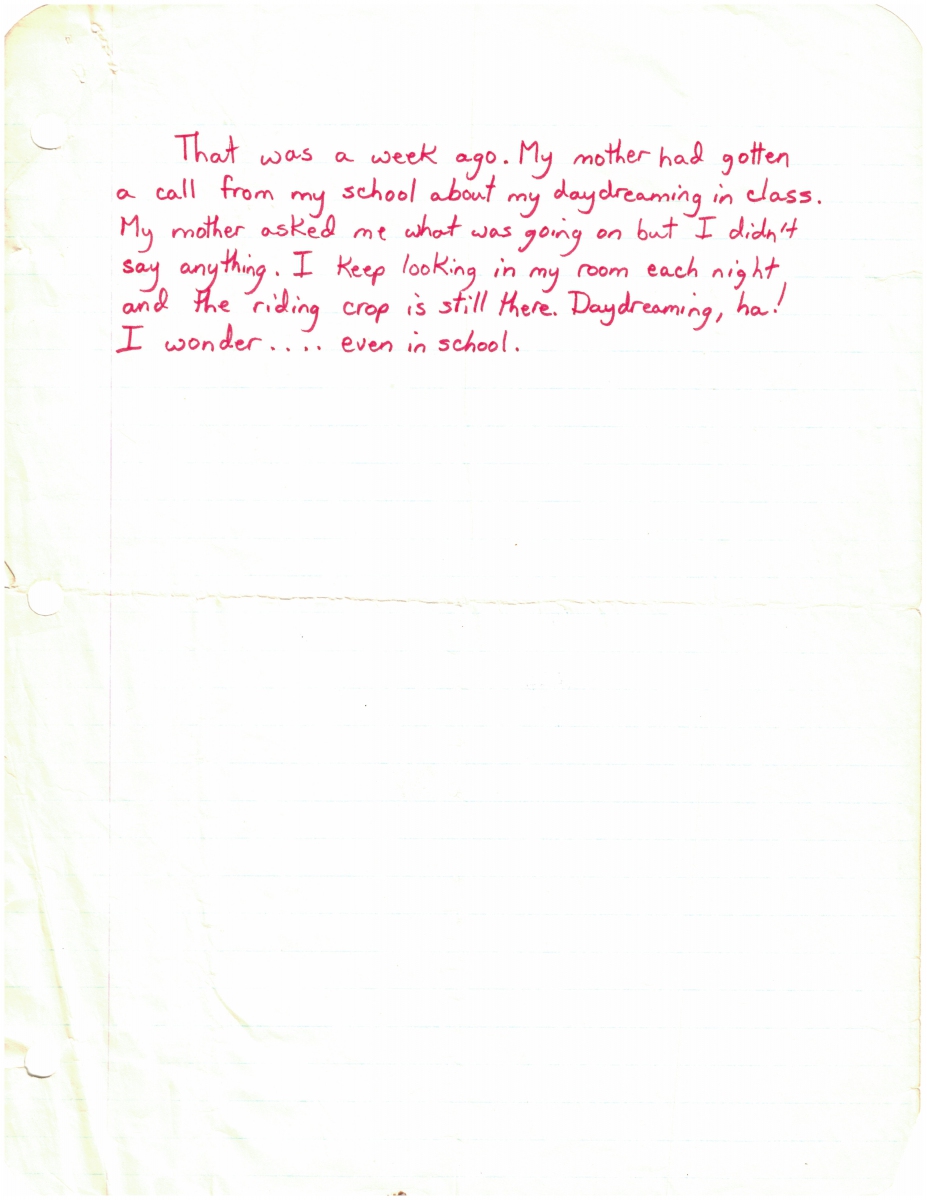 That was a week ago. My mother had gotten
a call from my school about my daydreaming in class.
My mother asked me what was going on but I didn't
say anything. I keep looking in my room each night
and the riding crop is still there. Daydreaming, ha!
I wonder.... even in school.